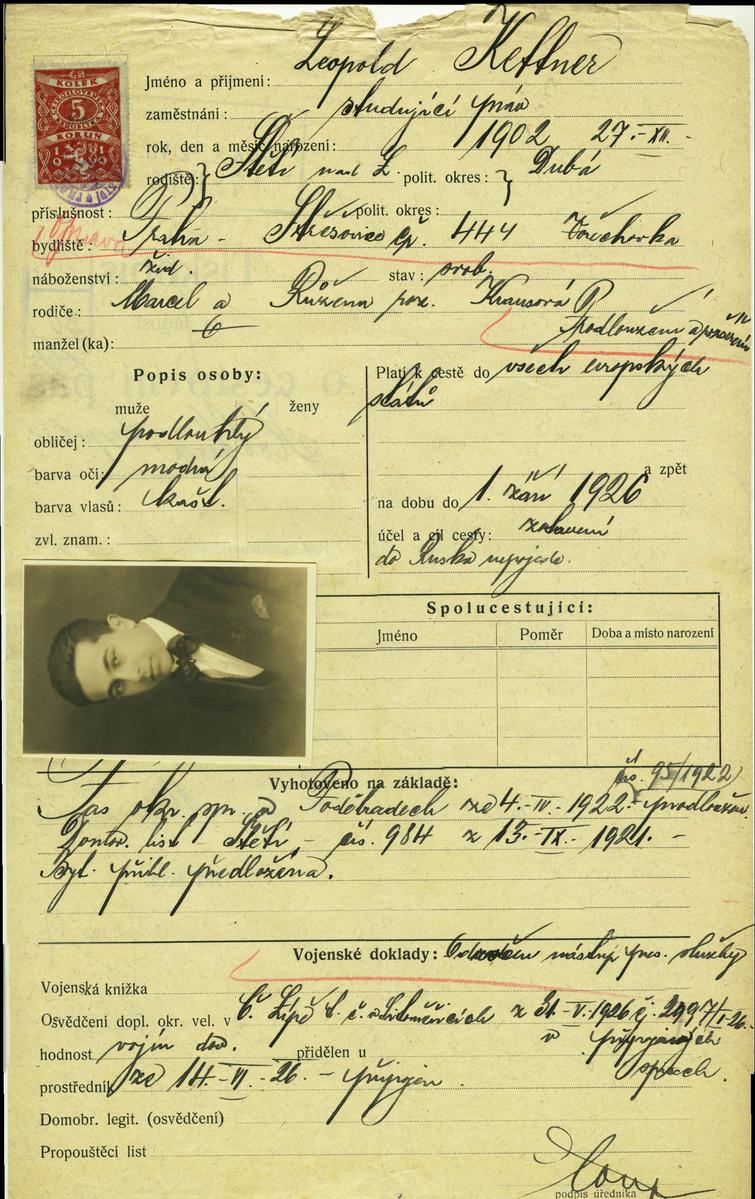 KOLEK
5
KORUN
1919
Jméno a příjmení: Leopold Kettner
zaměstnání: studující práv
rok, den a měsíc narození: 1902 27.-XII.-
rodiště: Štětí nad L. polit. okres: Dubá
příslušnost: polit. okres:
bydliště: Praha - Střešovice čp. 444 Ořechovka
náboženství: žid. stav: svob.
rodiče: Marcel a Růžena roz. Krausová
manžel(ka):
Popis osoby:
muže ženy
obličej: podlouhlý
barva očí: modrá
barva vlasů: kašt.
zvl. znam.:
Platí k cestě do všech evropských
států
a zpět
na dobu do 1. září 1926
účel a cíl cesty: zotavení
do Ruska nepojede.
Spolucestující:
Jméno Poměr Doba a místo narození
čís. 95/1922
Vyhotoveno na základě:
Pas okr. spr. v Poděbradech ze 4.-IV.-1922.- prodloužen
Domov. list - Štětí - čís. 984 z 13.-IX.-1921.-
Byt. přihl. předložena.
Vojenské doklady: nástup pres. služby
Vojenská knížka
Osvědčení dopl. okr. vel. v Č. Lípě t. č. v Litoměřicích z 31.-V.-1926 č. 2997/I-26.
hodnost vojín přidělen u
prostředník ze 14.-VI.-26.-
Domobr. legit. (osvědčení)
Propouštěcí list
podpis úředníka